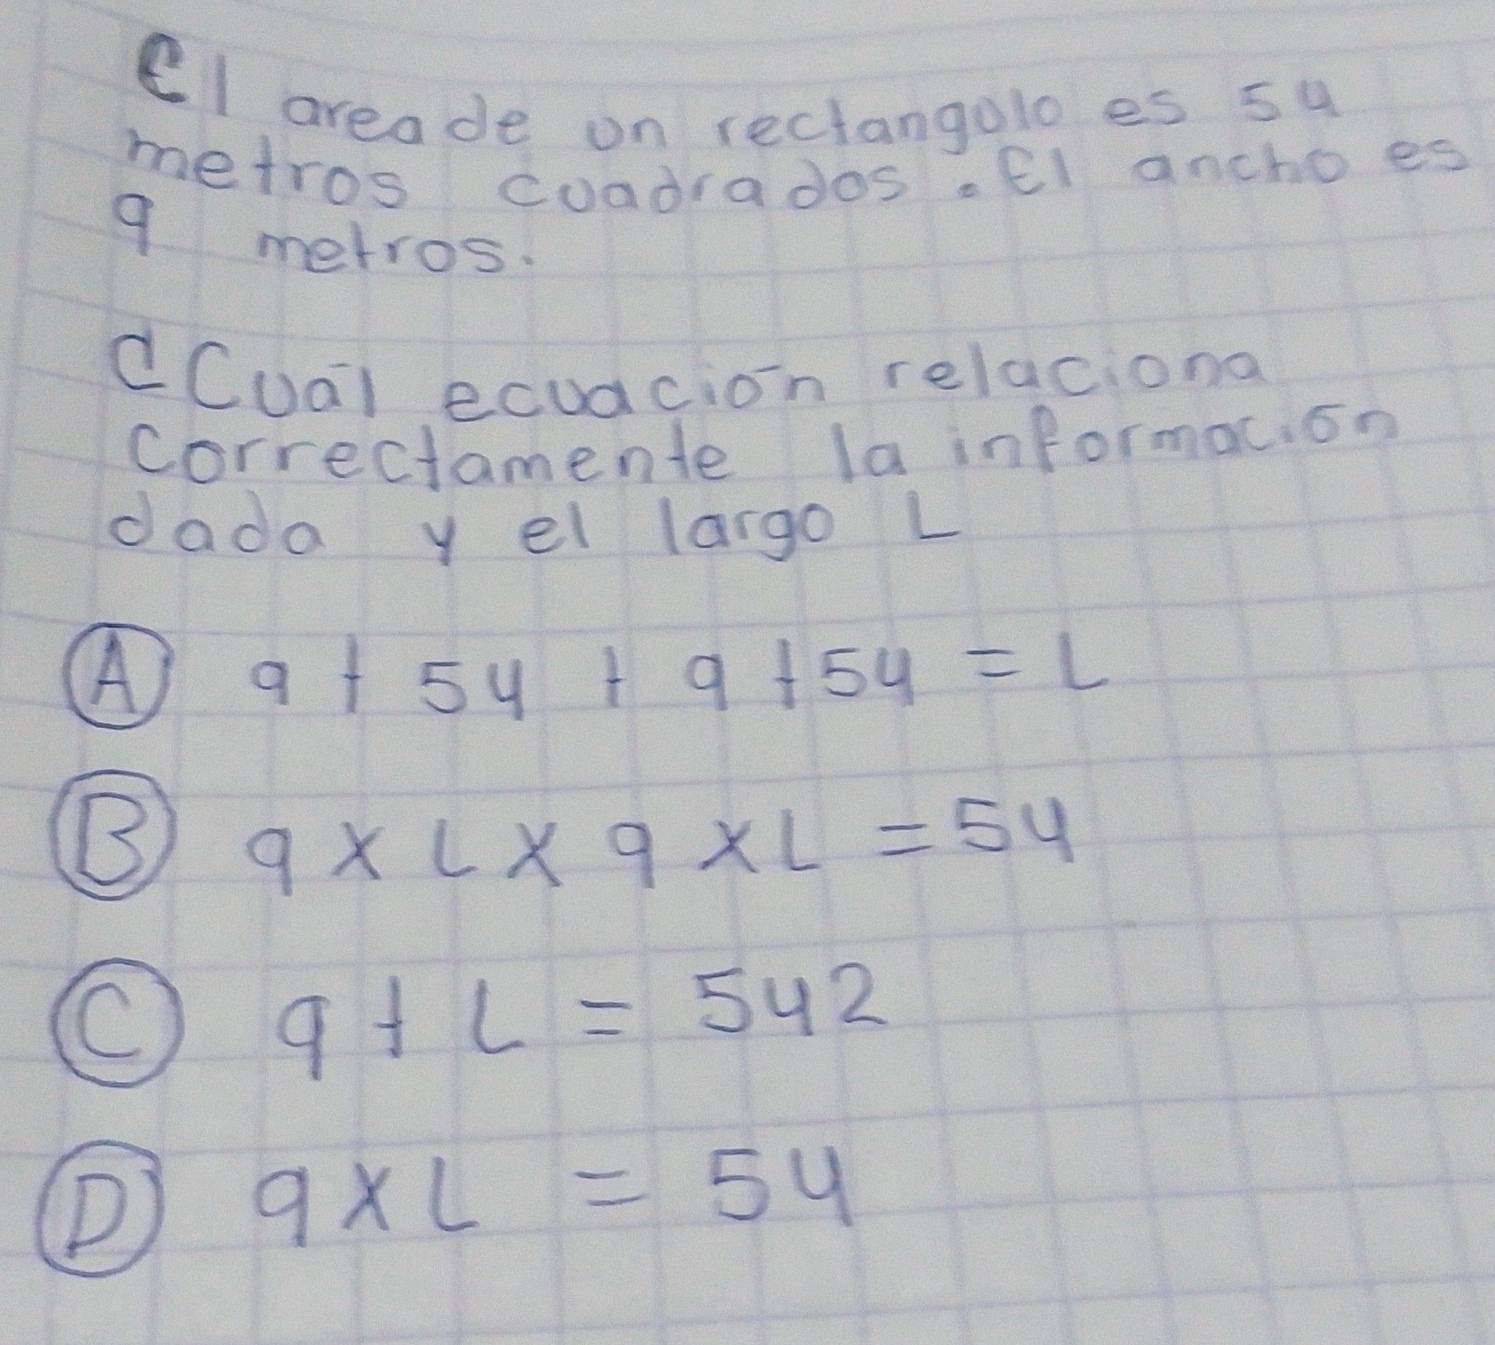 El area de un rectangulo es 54
metros cuadrados. El ancho es
9 metros.
¿Cuál ecuación relaciona
correctamente la información
dada y el largo L
A 9 + 54 + 9 + 54 = L
B 9 x L x 9 x L = 54
C 9 + L = 542
D 9 x L = 54